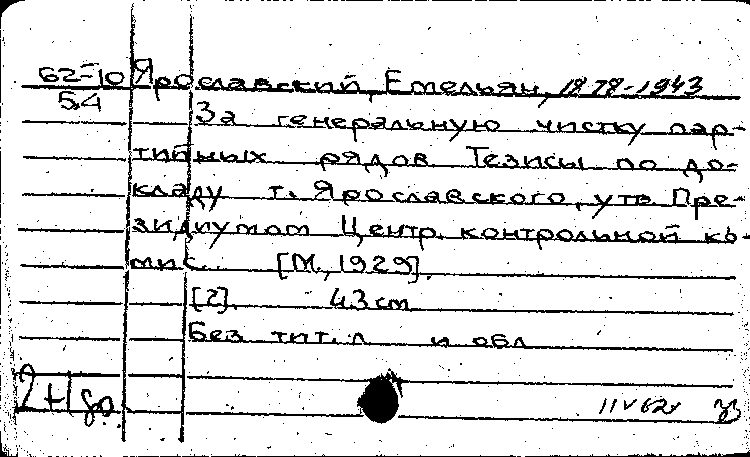 62-10 Ярославский, Емельян, 1878-1943
54
За генеральную чистку пар-
тийных рядов Тезисы по до-
кладу т. Ярославского, утв Пре-
зидиумом Центр. контрольной ко-
мис. [М., 1929].
[2]. 43 см
Без тит. л и обл
11 V 62г